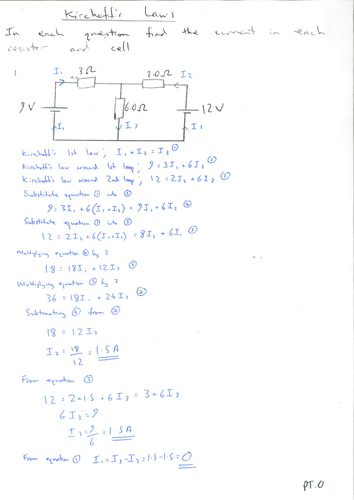 Kirchoff's Laws
In each question find the current in each
resistor and cell
1
I₁ 3Ω 2.0Ω I₂
9V 6.0Ω 12V
I₁ I₃ I₂
Kirchoff's 1st law; I₁ + I₂ = I₃ ①
Kirchoff's law around 1st loop; 9 = 3I₁ + 6I₃ ②
Kirchoff's law around 2nd loop; 12 = 2I₂ + 6I₃ ③
Substitute equation ① into ②
9 = 3I₁ + 6(I₁ + I₂) = 9I₁ + 6I₂ ④
Substitute equation ① into ③
12 = 2I₂ + 6(I₁ + I₂) = 8I₂ + 6I₁ ⑤
Multiplying equation ④ by 2
18 = 18I₁ + 12I₂
Multiplying equation ⑤ by 3
36 = 18I₁ + 24I₂
Subtracting from
18 = 12I₂
I₂ = 18/12 = 1.5A
From equation ③
12 = 2×1.5 + 6I₃ = 3 + 6I₃
6I₃ = 9
I₃ = 9/6 = 1.5A
From equation ① I₁ = I₃ - I₂ = 1.5 - 1.5 = 0
PT.O